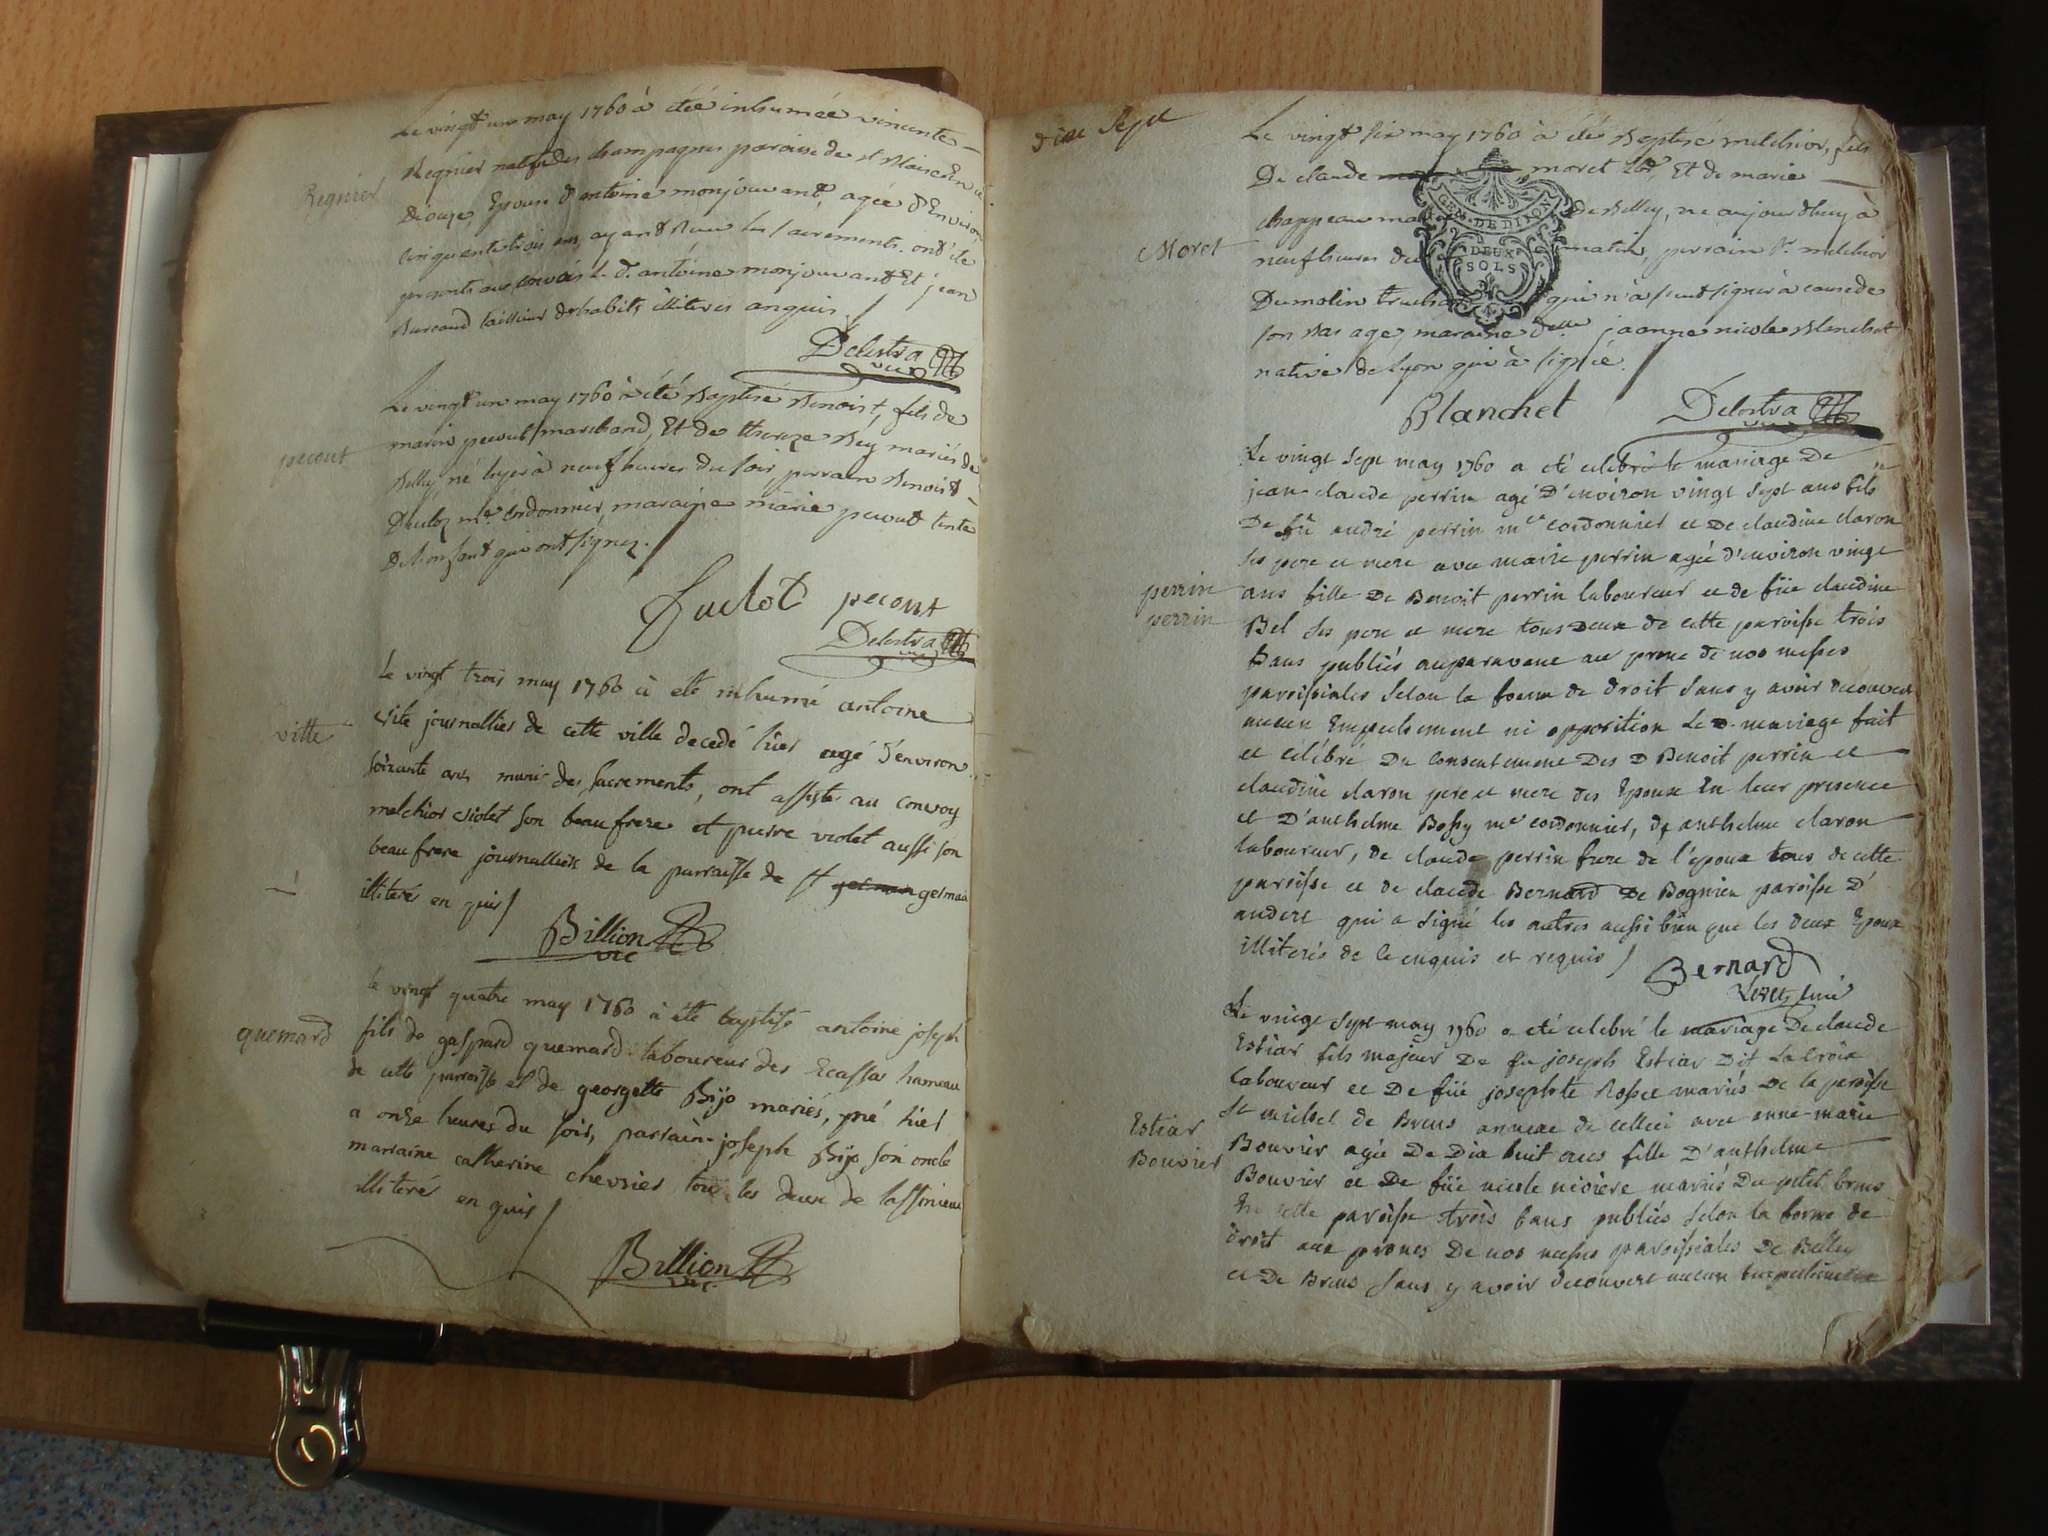 Le vingt un may 1760 à étée inhumée vincente
Regnier
Regnier native des champagnes paroisse de st Blaise En
Epouse d'antoine monjouvant, agée d'Environ
cinquante trois ans, ayant Receu les sacrements. ont été
presents au convoi L. d. antoine monjouvant Et jean
Burcand tailleur d'habits illiteres enquis /
Delestra vic
Le vingt un may 1760 à été Baptisé Benoist, fils de
pecout
marin pecout marchand, Et de thereze Bey mariés de
Belley, né hyer à neuf heures du soir, parrain Benoist
Ducloz me cordonnier, maraine marie pecout tente
De lenfant qui ont signez.
Duclot pecout
Delestra vic
Le vingt trois may 1760 à eté inhumé antoine
vitte
vite journallier de cette ville decedé hier agé d'environ
soixante ans muni des sacrements, ont assisté au convoy
melchior violet son beaufrere et pierre violet aussi son
beaufrere journallier de la parroisse de st german germain
illiteré en quis /
Billion vic
le vingt quatre may 1760 à été baptisé antoine joseph
quemard
fils de gaspard quemard laboureur des Ecassas hameau
de cette parroisse et de georgette Bijo mariés, né hier
a onze heures du soir, parrain joseph Bijo son oncle
marraine catherine chevrier tous les deux de lassinieu
illiteré en quis /
Billion vic
dixe Sept
Le vingt six may 1760 à été Baptisé melchior, fils
De claude moret Et de marie
GEN. DE DIJON
DEUX SOLS
Moret
chappeau de Belley, né aujourdhuy à
neuf heures du matin, parrain Sr. melchior
Dumolin qui n'à peut signer à cause de
son bas age, maraine delle jeanne nicole Blanchet
native de lyon qui à signée. /
Blanchet Delestra vic
Le vingt sept may 1760 a eté celebré le mariage De
jean claude perrin agé D'environ vingt sept ans fils
De fû andré perrin me cordonnier et de claudine claron
ses pere et mere avec marie perrin agée d'environ vingt
perrin
perrin
ans fille De Benoit perrin laboureur et de fûe claudine
Bel ses pere et mere tous Deux de cette paroisse trois
bans publiés auparavant au prone de nos messes
paroissiales selon la forme de droit sans y avoir decouvert
aucun Empechement ni opposition Le D. mariage fait
et célébré Du consentement Des D Benoit perrin et
claudine claron pere et mere des Epoux En leur presence
et D'anthelme Bossy me cordonnier, de anthelme claron
laboureur, de claude perrin frere de l'epoux tous de cette
paroisse et de claude Bernard De Bognien paroisse D'
andert qui a signé les autres aussi bien que les deux Epoux
illiterés de ce enquis et requis /
Bernard
Le vingt sept may 1760 a eté celebré le mariage De claude
Estiar fils majeur De fu joseph Estiar Dit La Croix
laboureur et De fûe josephte mariés De la paroisse
St michel de Brens annexe de celleci avec anne-marie
Estiar
Bouvier
Bouvier agée De Dix huit ans fille D'anthelme
Bouvier et De fûe nicole niviere mariés Du petit brens
En cette paroisse trois bans publiés selon la forme de
droit aux prones De nos messes paroissiales De Belley
et De Brens sans y avoir decouvert aucun Empechement